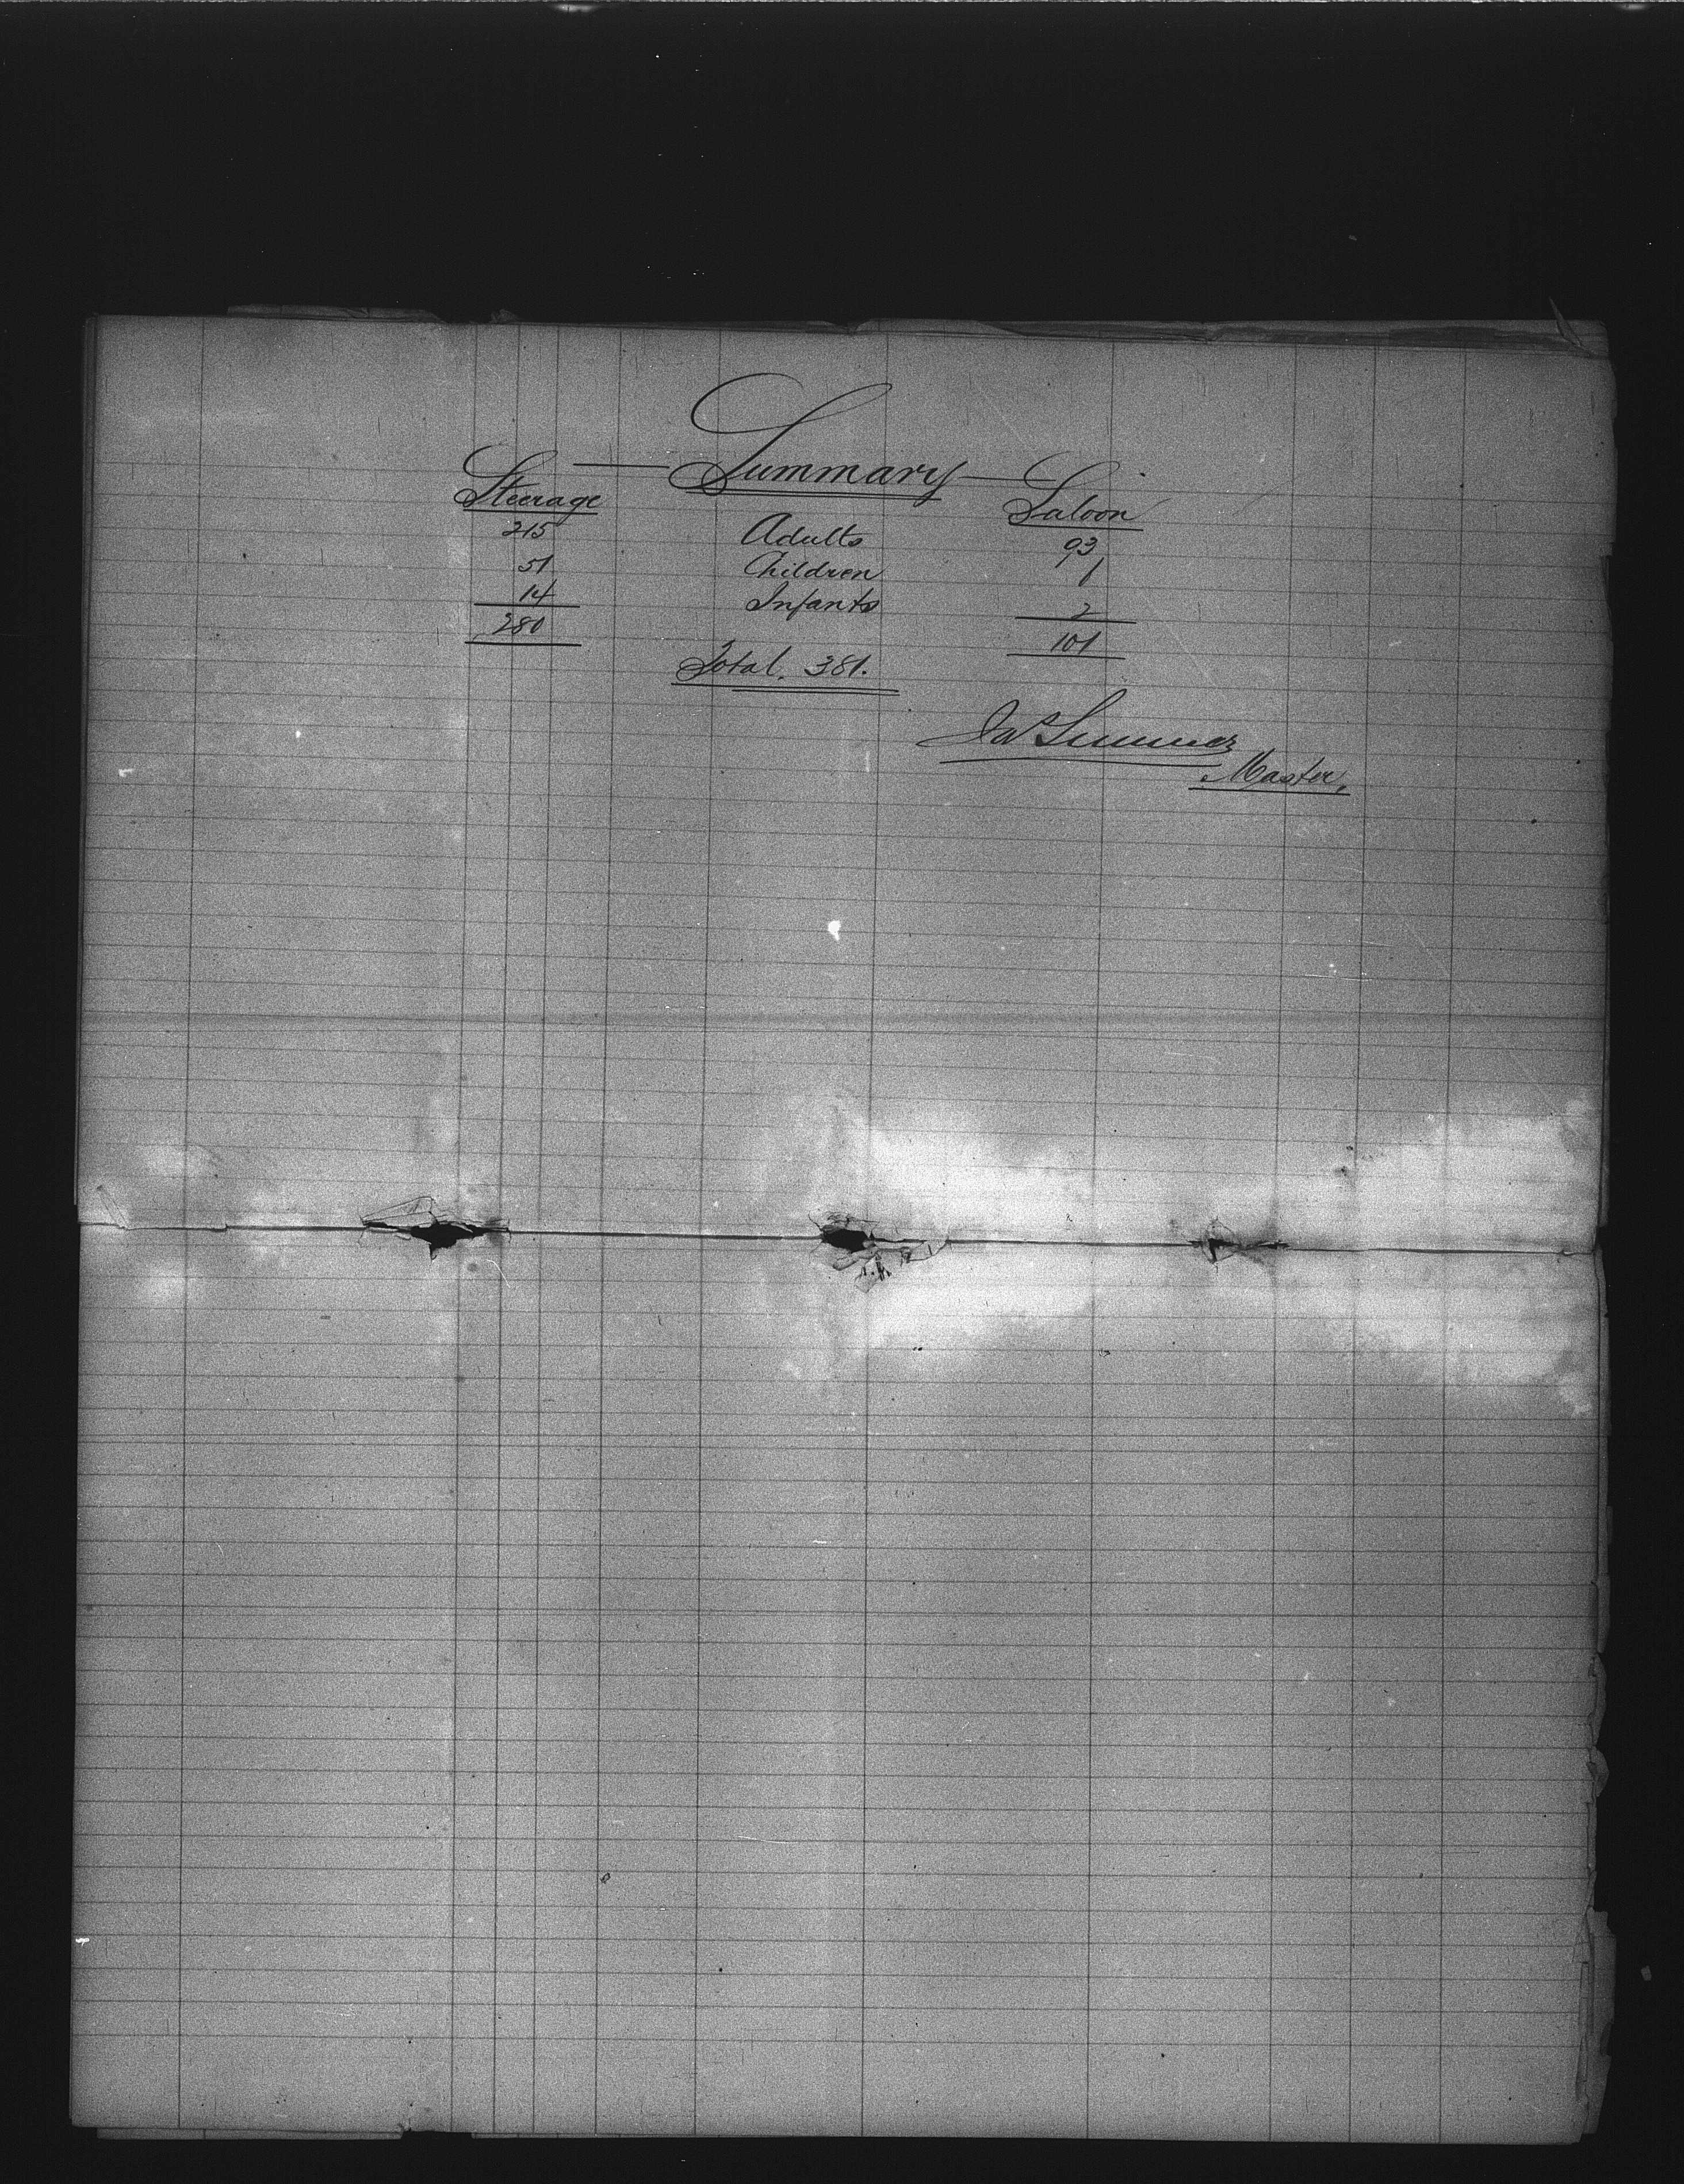 Summary
Steerage Saloon
215 Adults 93
51 Children 6
14 Infants 2
280 101
Total. 381.
Master.